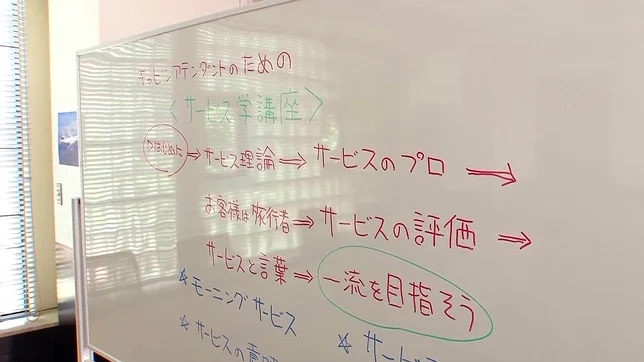 キャビンアテンダントのための
〈サービス学講座〉
はじめに ⇒ サービス理論 ⇒ サービスのプロ ⇒
お客様は旅行者 ⇒ サービスの評価 ⇒
サービスと言葉 ⇒ 一流を目指そう
☆モーニングサービス
☆サービスの ☆サービス